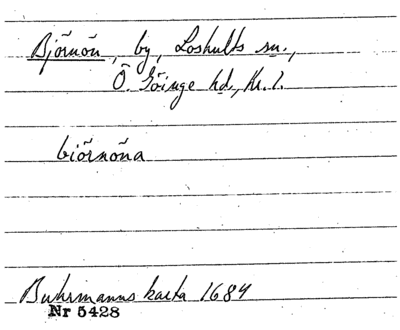 Björnön, by, Loshults sn.,
Ö. Göinge hd., Kr. l.
biörnöna
Buhrmanns karta 1684
Nr 5428